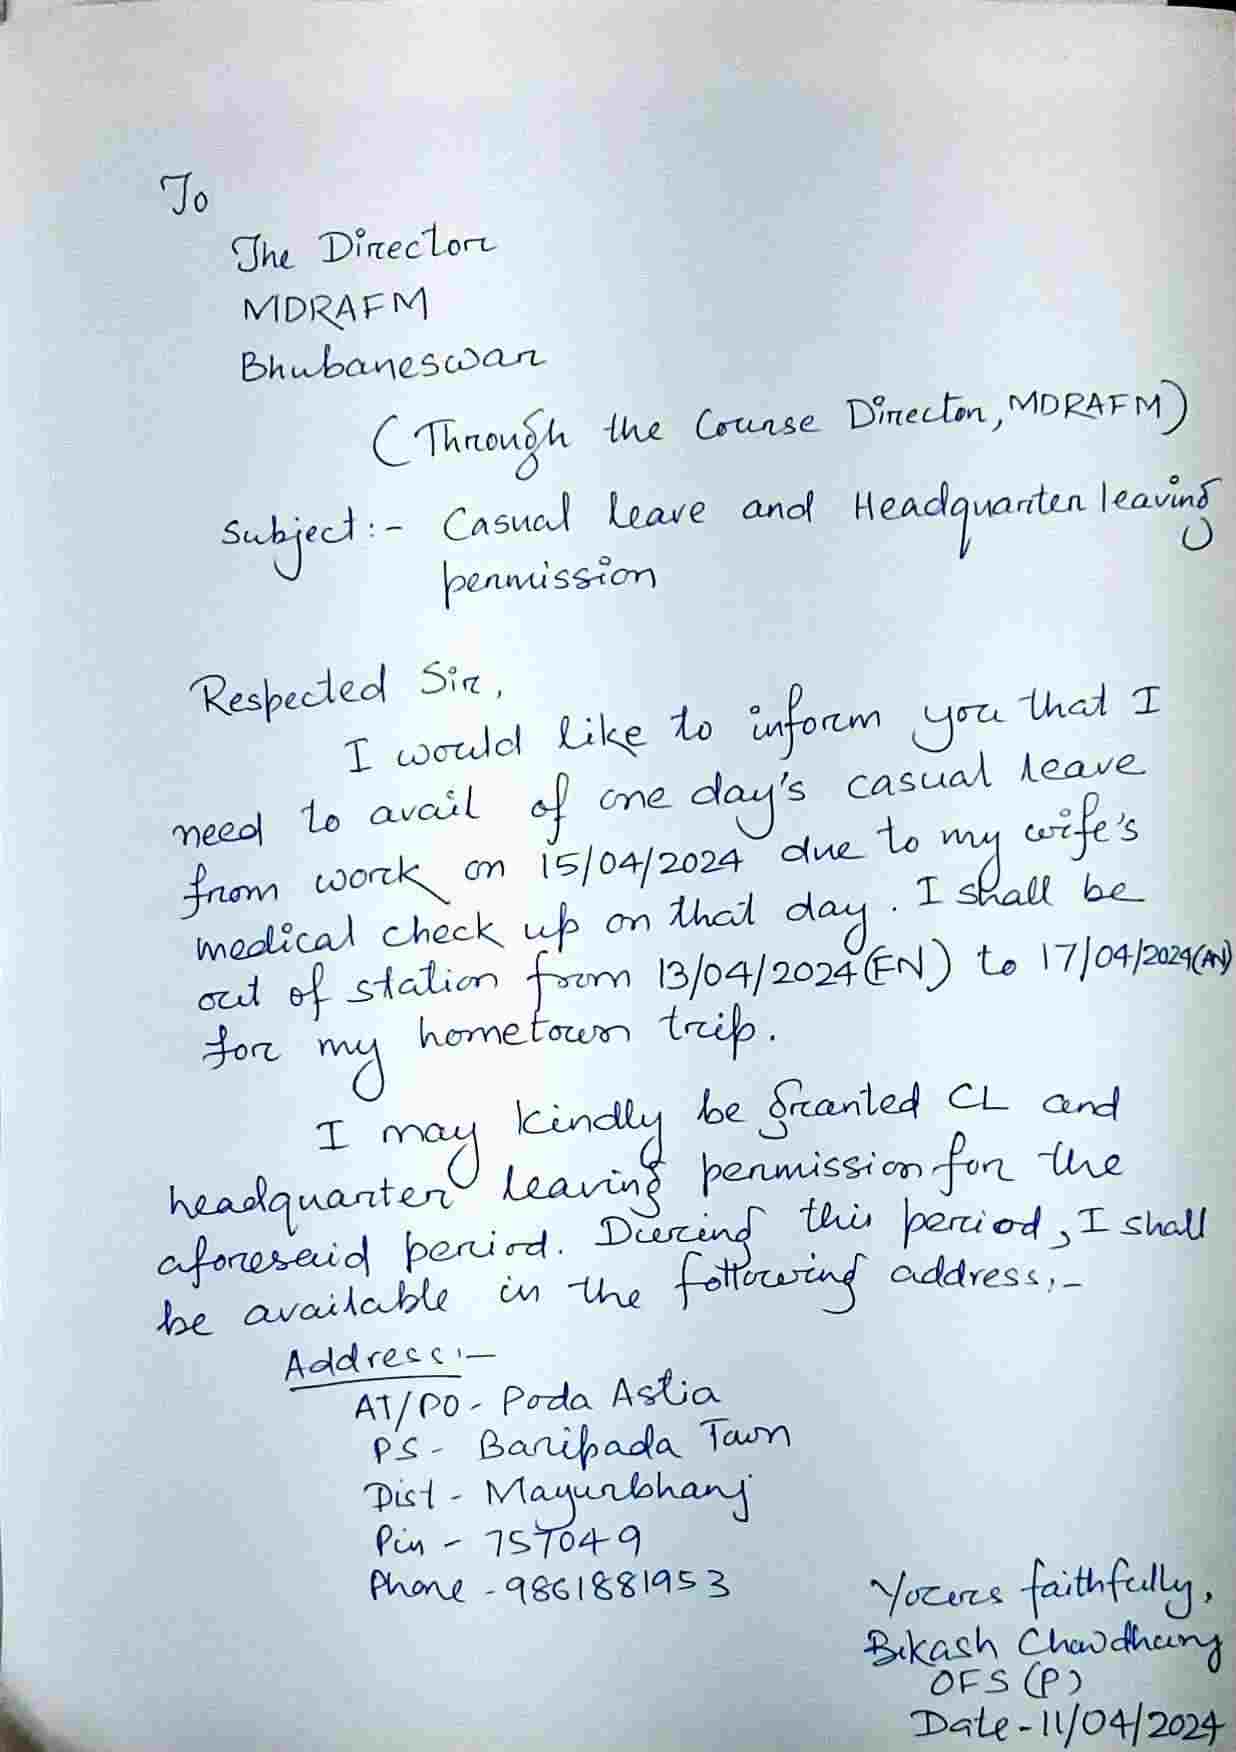 To
The Director
MDRAFM
Bhubaneswar
(Through the Course Director, MDRAFM)
Subject:- Casual leave and Headquarter leaving
permission
Respected Sir,
I would like to inform you that I
need to avail of one day's casual leave
from work on 15/04/2024 due to my wife's
medical check up on that day. I shall be
out of station from 13/04/2024(FN) to 17/04/2024(AN)
for my hometown trip.
I may kindly be granted CL and
headquarter leaving permission for the
aforesaid period. During this period, I shall
be available in the following address:-
Address:-
AT/PO- Poda Astia
PS- Baripada Town
Dist - Mayurbhanj
Pin - 757049
Phone - 9861881953
Yours faithfully,
Bikash Chowdhury
OFS (P)
Date-11/04/2024